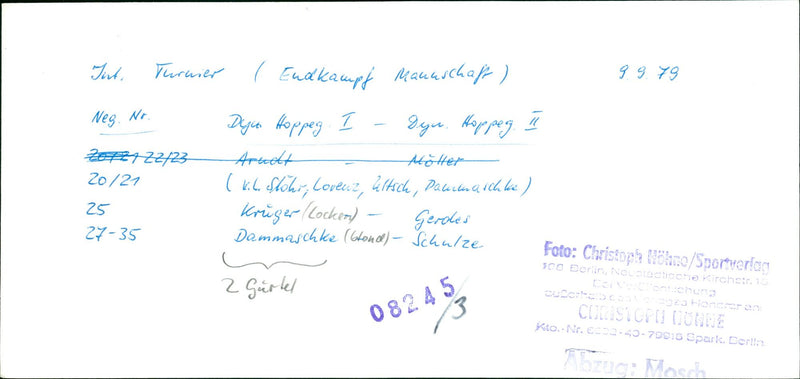 Int. Turnier ( Endkampf Mannschaft ) 9 9. 79
Neg. Nr. Dyn. Hoppeg. I – Dyn. Hoppeg. II
20/21 22/23 Arndt – Möller
20/21 ( v.l. Stöhr, Lorenz, Ultsch, Dammaschke )
25 Krüger (Locken) – Gerdes
27-35 Dammaschke (blond) – Schulze
2 Gürtel
08245/3
Foto: Christoph Höhne/Sportverlag
108 Berlin, Neustädtische Kirchstr. 15
Bei Veröffentlichung
außerhalb des Verlages Honorar an
CHRISTOPH HÖHNE
Kto.-Nr. Spark. Berlin
Abzug: Mosch